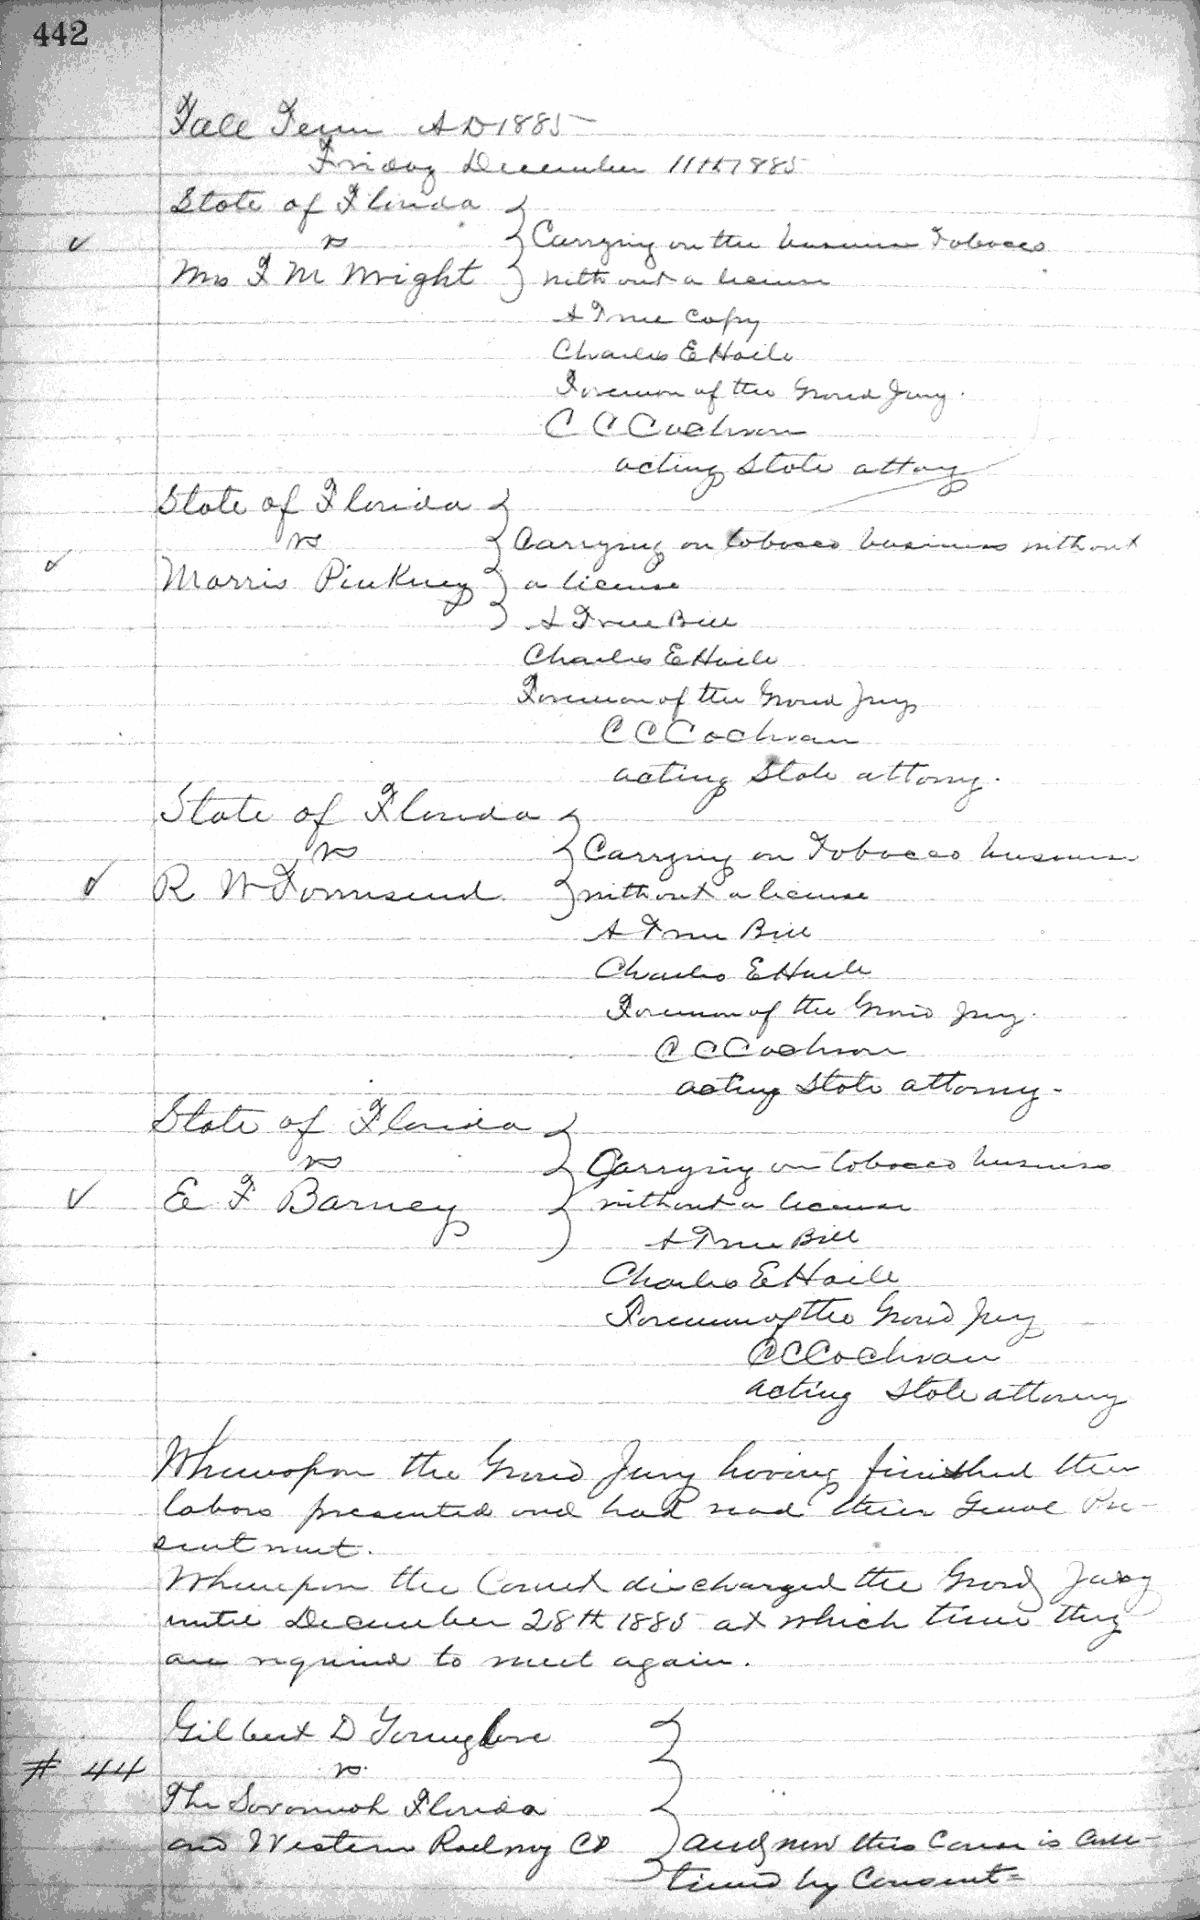 442
Fall Term A D 1885
Friday December 11th 1885
State of Florida
vs
Carrying on the business Tobacco
Mrs F M Wright
without a license
A True Copy
Charles E Haile
Foreman of the Grand Jury.
C C Cochran
acting State attoy
State of Florida
vs
Carrying on tobacco business without
Morris Pinkney
a license
A True Bill
Charles E Haile
Foreman of the Grand Jury
C C Cochran
acting State attorny.
State of Florida
vs
Carrying on Tobacco business
R W Townsend
without a license
A True Bill
Charles E Haile
Foreman of the Grand Jury.
C C Cochran
acting State attorny.
State of Florida
vs
Carrying on tobacco business
E F Barney
without a license
A True Bill
Charles E Haile
Foreman of the Grand Jury
C C Cochran
acting State attorney
Whereupon the Grand Jury having finished their
labors presented and had read their Pre-
sentment.
Whereupon the Court discharged the Grand Jury
until December 28th 1885 at which time they
are required to meet again.
Gilbert D Younglove
# 44
vs.
The Savannah Florida
and Western Railway Co
And now this Cause is Con-
tinued by Consent=